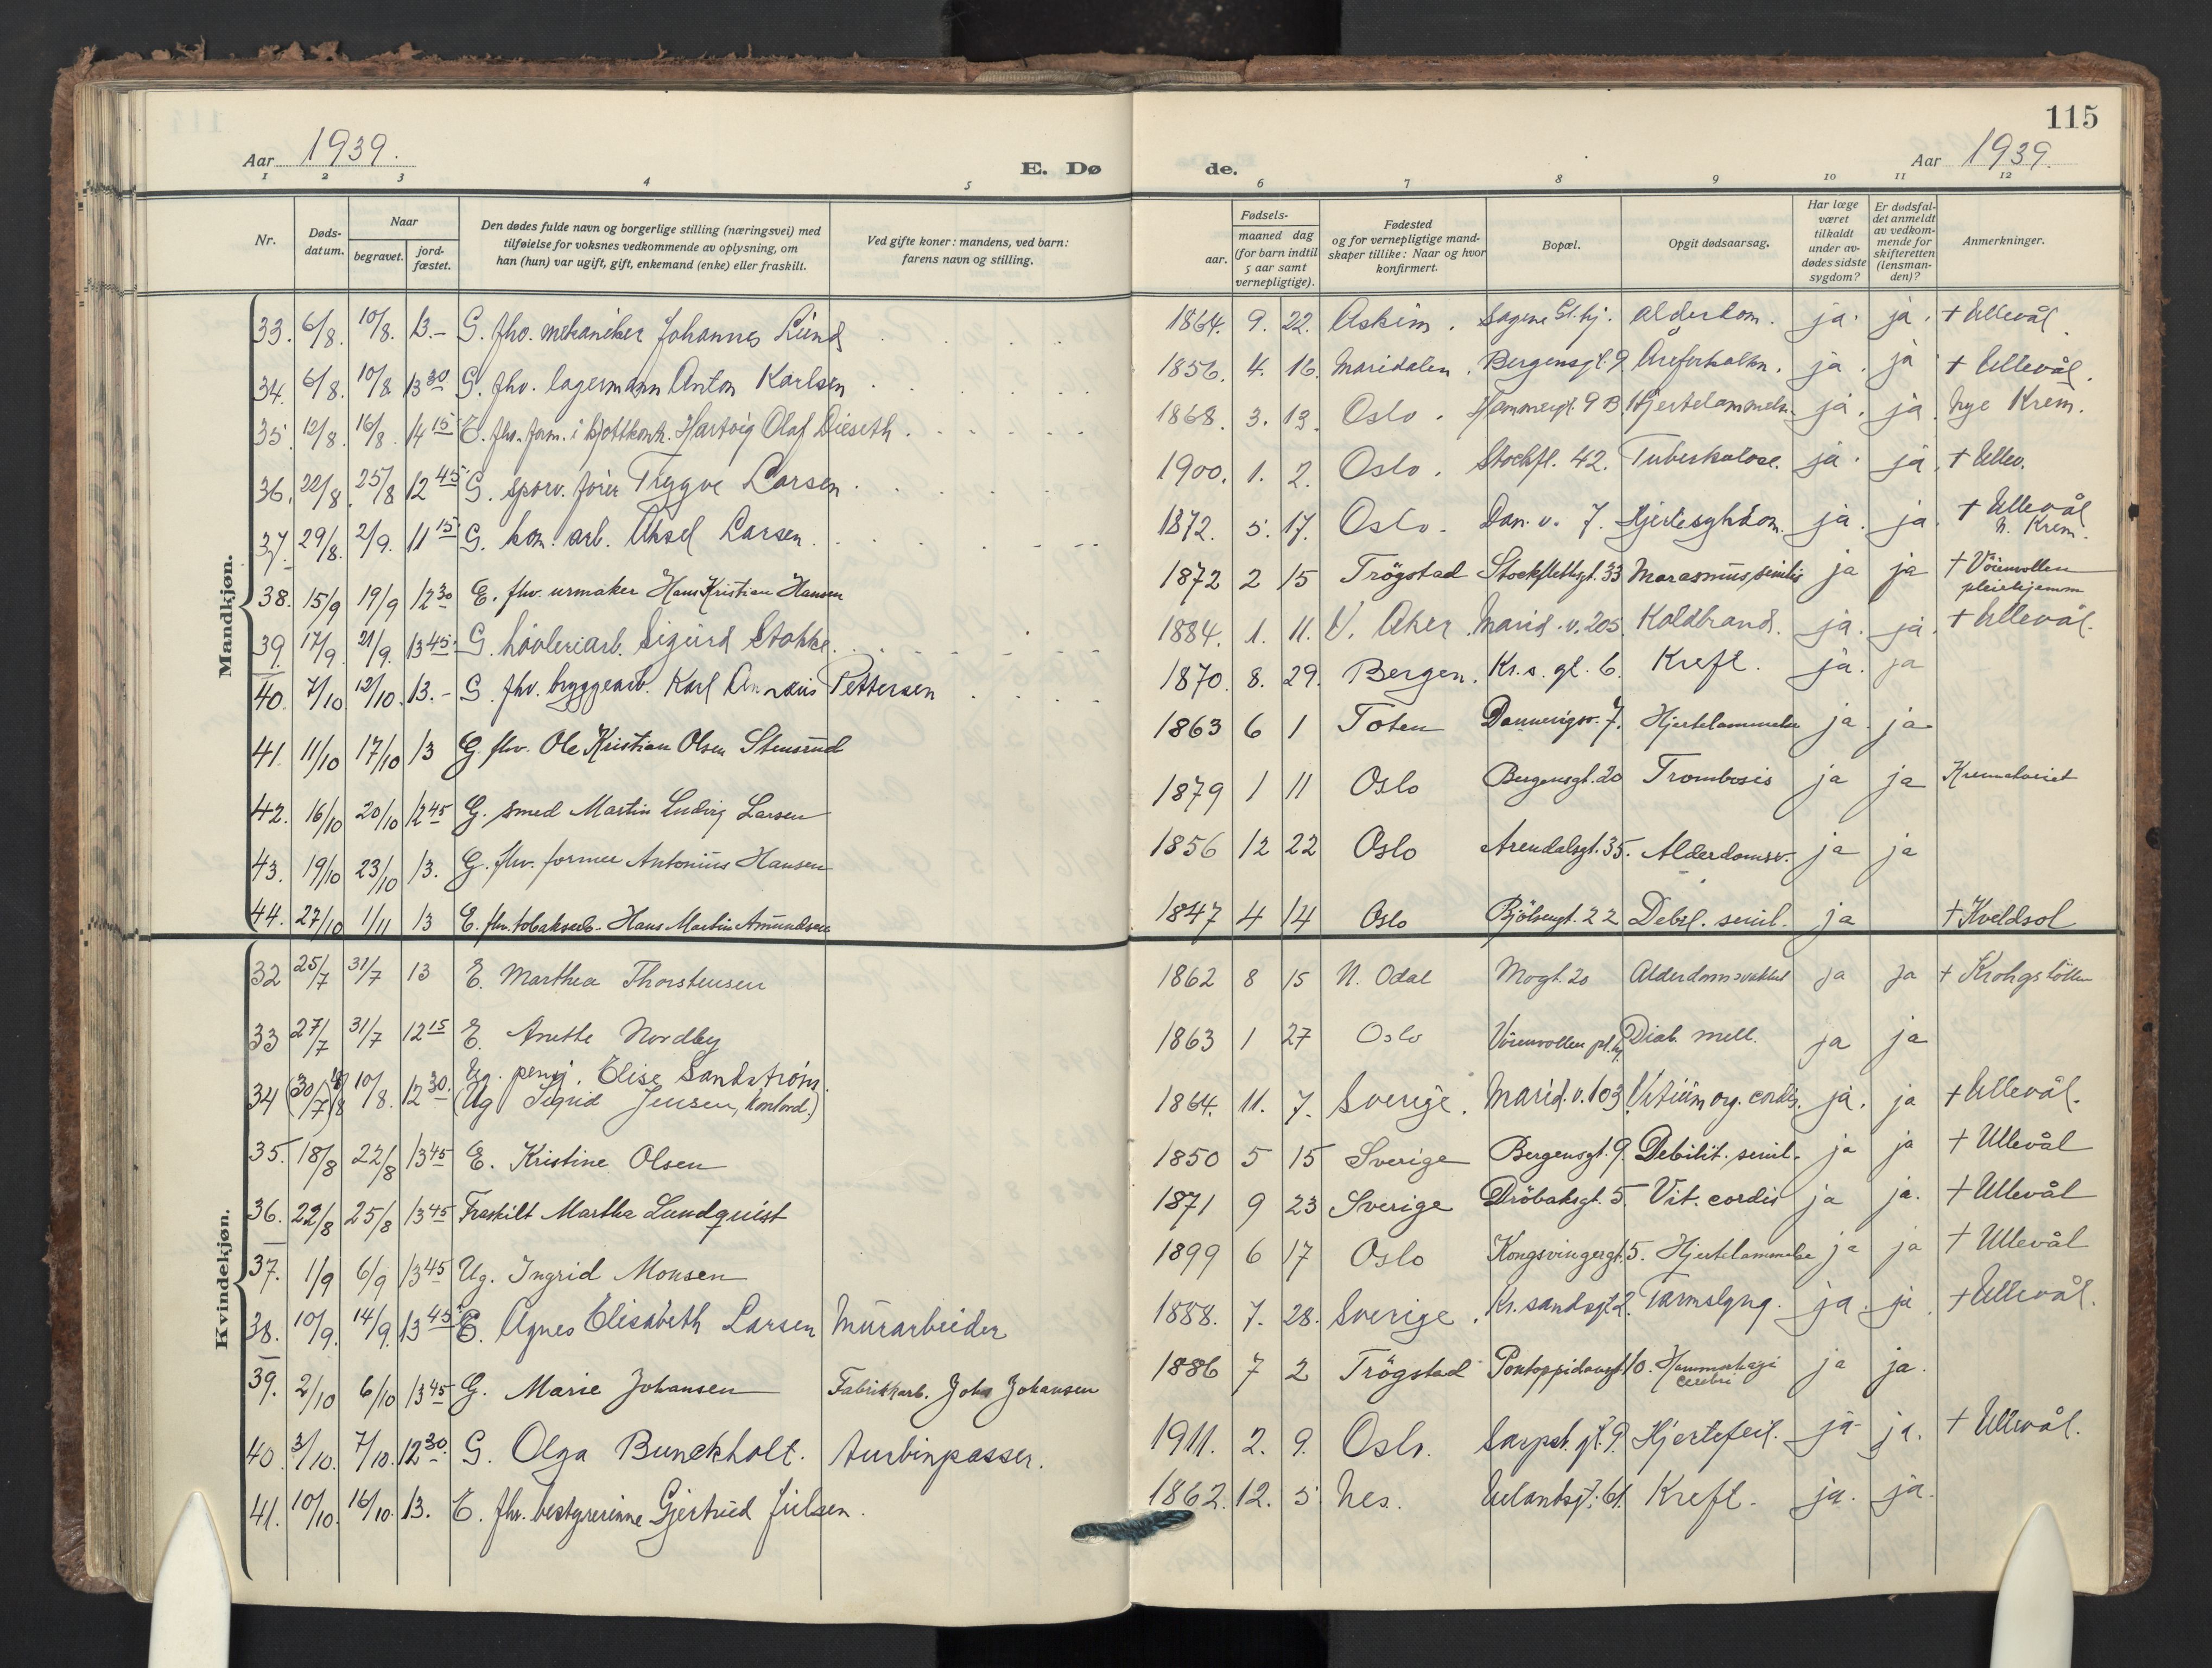 115
Aar 1939.
E. Dø
de.
Aar 1939.
1 2 3 4 5 6 7 8 9 10 11 12
Nr.
Døds-
datum.
Naar
begravet.
jord-
fæstet.
Den dødes fulde navn og borgerlige stilling (næringsvei) med
tilføielse for voksnes vedkommende av oplysning, om
han (hun) var ugift, gift, enkemand (enke) eller fraskilt.
Ved gifte koner: mandens, ved barn:
farens navn og stilling.
Fødsels-
aar.
maaned dag
(for barn indtil
5 aar samt
vernepligtige).
Fødested
og for vernepligtige mand-
skaper tillike: Naar og hvor
konfirmert.
Bopæl.
Opgit dødsaarsag.
Har læge
været
tilkaldt
under av-
dødes sidste
sygdom?
Er dødsfal-
det anmeldt
av vedkom-
mende for
skifteretten
(lensman-
den)?
Anmerkninger.
Mandkjøn.
33. 6/8. 10/8. 13.- G. fhv. mekaniker Johannes Lund 1864. 9. 22. Askim. Sagene Gl.hj. Alderdom. ja. ja. + Ullevål
34. 6/8. 10/8. 13 30 G. fhv. lagermann Anton Karlsen 1856. 4. 16. Maridalen. Bergensgt. 9 Åreforkalkn. ja. ja + Ullevål.
35. 12/8. 16/8. 14 15 E. fhv. form. i kjøttkontr. Hartvig Olaf Dieseth. 1868. 3. 13. Oslo. Hammergt. 9 B. Hjertelammelse. ja. ja. nye Krem.
36. 22/8. 25/8 12 45 G. sporv. fører Trygve Larsen 1900. 1. 2. Oslo. Stockfl. 42. Tuberkulose. ja. ja. + Ullev.
37. 29/8. 2/9. 11 15 G. kom. arb. Aksel Larsen. 1872. 5. 17. Oslo. Dan. v. 7. Hjertesykdom. ja. ja. + Ullevål
N. Krem.
38. 15/9 19/9 12 30 E. fhv. urmaker Hans Kristian Hansen 1872 2 15 Trögstad Stockflethsgt. 33 Marasmus senilis ja ja + Vöienvollen
pleiehjemm
39. 17/9. 21/9. 13 45. G. hövleriarb. Sigurd Stokke. 1884. 1. 11. V. Aker. Marid. v. 205. Koldbrand. ja. ja. + Ullevål.
40. 7/10 12/10. 13.- G. fhv. bryggearb. Karl Pettersen 1870. 8. 29. Bergen. Kr.s. gt. 6. Kreft. ja. ja
41. 11/10 17/10 13 G. fhv. Ole Kristian Olsen Stensrud 1863 6 1 Toten Dannevigsv. 7. Hjertelammelse ja. ja
42. 16/10 20/10 12 45 G. smed Martin Ludvig Larsen 1879 1 11 Oslo Bergensgt. 20 Trombosis ja ja Krematoriet
43. 19/10 23/10 13. G. fhv. former Antonius Hansen 1856 12 22 Oslo Arendalsgt. 35. Alderdomsv. ja ja
44. 27/10 1/11 13 E. fhv. tobaksarb. Hans Martin Amundsen 1847 4 14 Oslo Bjölsengt. 22 Debil. senil. ja + Kveldsol
Kvindekjøn.
32 25/7 31/7 13 E. Marthea Thorstensen 1862 8 15 N. Odal Mogt. 20 Alderdomssvakhet ja ja + Krohgstötten
33 27/7 31/7 12 15 E. Anethe Nordby 1863 1 27 Oslo Vöienvollen pl.hj. Diab. mell. ja ja
Ug. pensj. Elise Sandström.
34 (30/7) 4/8 10/8. 12 30. (Ug Sigrid Jensen, kontord.) 1864. 11. 7. Sverige. Marid. v. 103. Vitium org. cordis. ja. ja + Ullevål.
35. 18/8 22/8 13 45 E. Kristine Olsen 1850 5 15 Sverige Bergensgt. 9. Debilit. senil. ja ja + Ullevål
36. 22/8 25/8 13 45 Fraskilt Martha Lundquist 1871 9 23 Sverige Dröbaksgt. 5. Vit. cordis ja ja. + Ullevål
37. 1/9 6/9 13 45 Ug. Ingrid Monsen 1899 6 17 Oslo Kongsvingergt. 5. Hjertelammelse ja ja + Ullevål
38. 10/9. 14/9. 13 45 E. Agnes Elisabeth Larsen Murarbeider 1888. 7. 28. Sverige. Kr.sandsgt. 2. Tarmslyng. ja. ja. + Ullevål.
39. 2/10 6/10 13 45 G. Marie Johansen Fabrikkarb. John Johansen 1886 7 2 Trögstad Pontoppidansgt. 10. Hemmorhagi
cerebri ja ja.
40. 3/10. 7/10. 12 30. G. Olga Bunckholt. turbinpasser. 1911. 2. 9. Oslo. Sarpsb. gt. 9. Hjertefeil. ja ja. + Ullevål.
41. 10/10. 16/10. 13. E. fhv. bestyrerinne Gjertrud Juelsen. 1862. 12. 5 Nes. Uelandsgt. 61. Kreft. ja. ja.